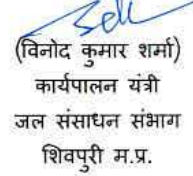 (विनोद कुमार शर्मा)
कार्यपालन यंत्री
जल संसाधन संभाग
शिवपुरी म.प्र.